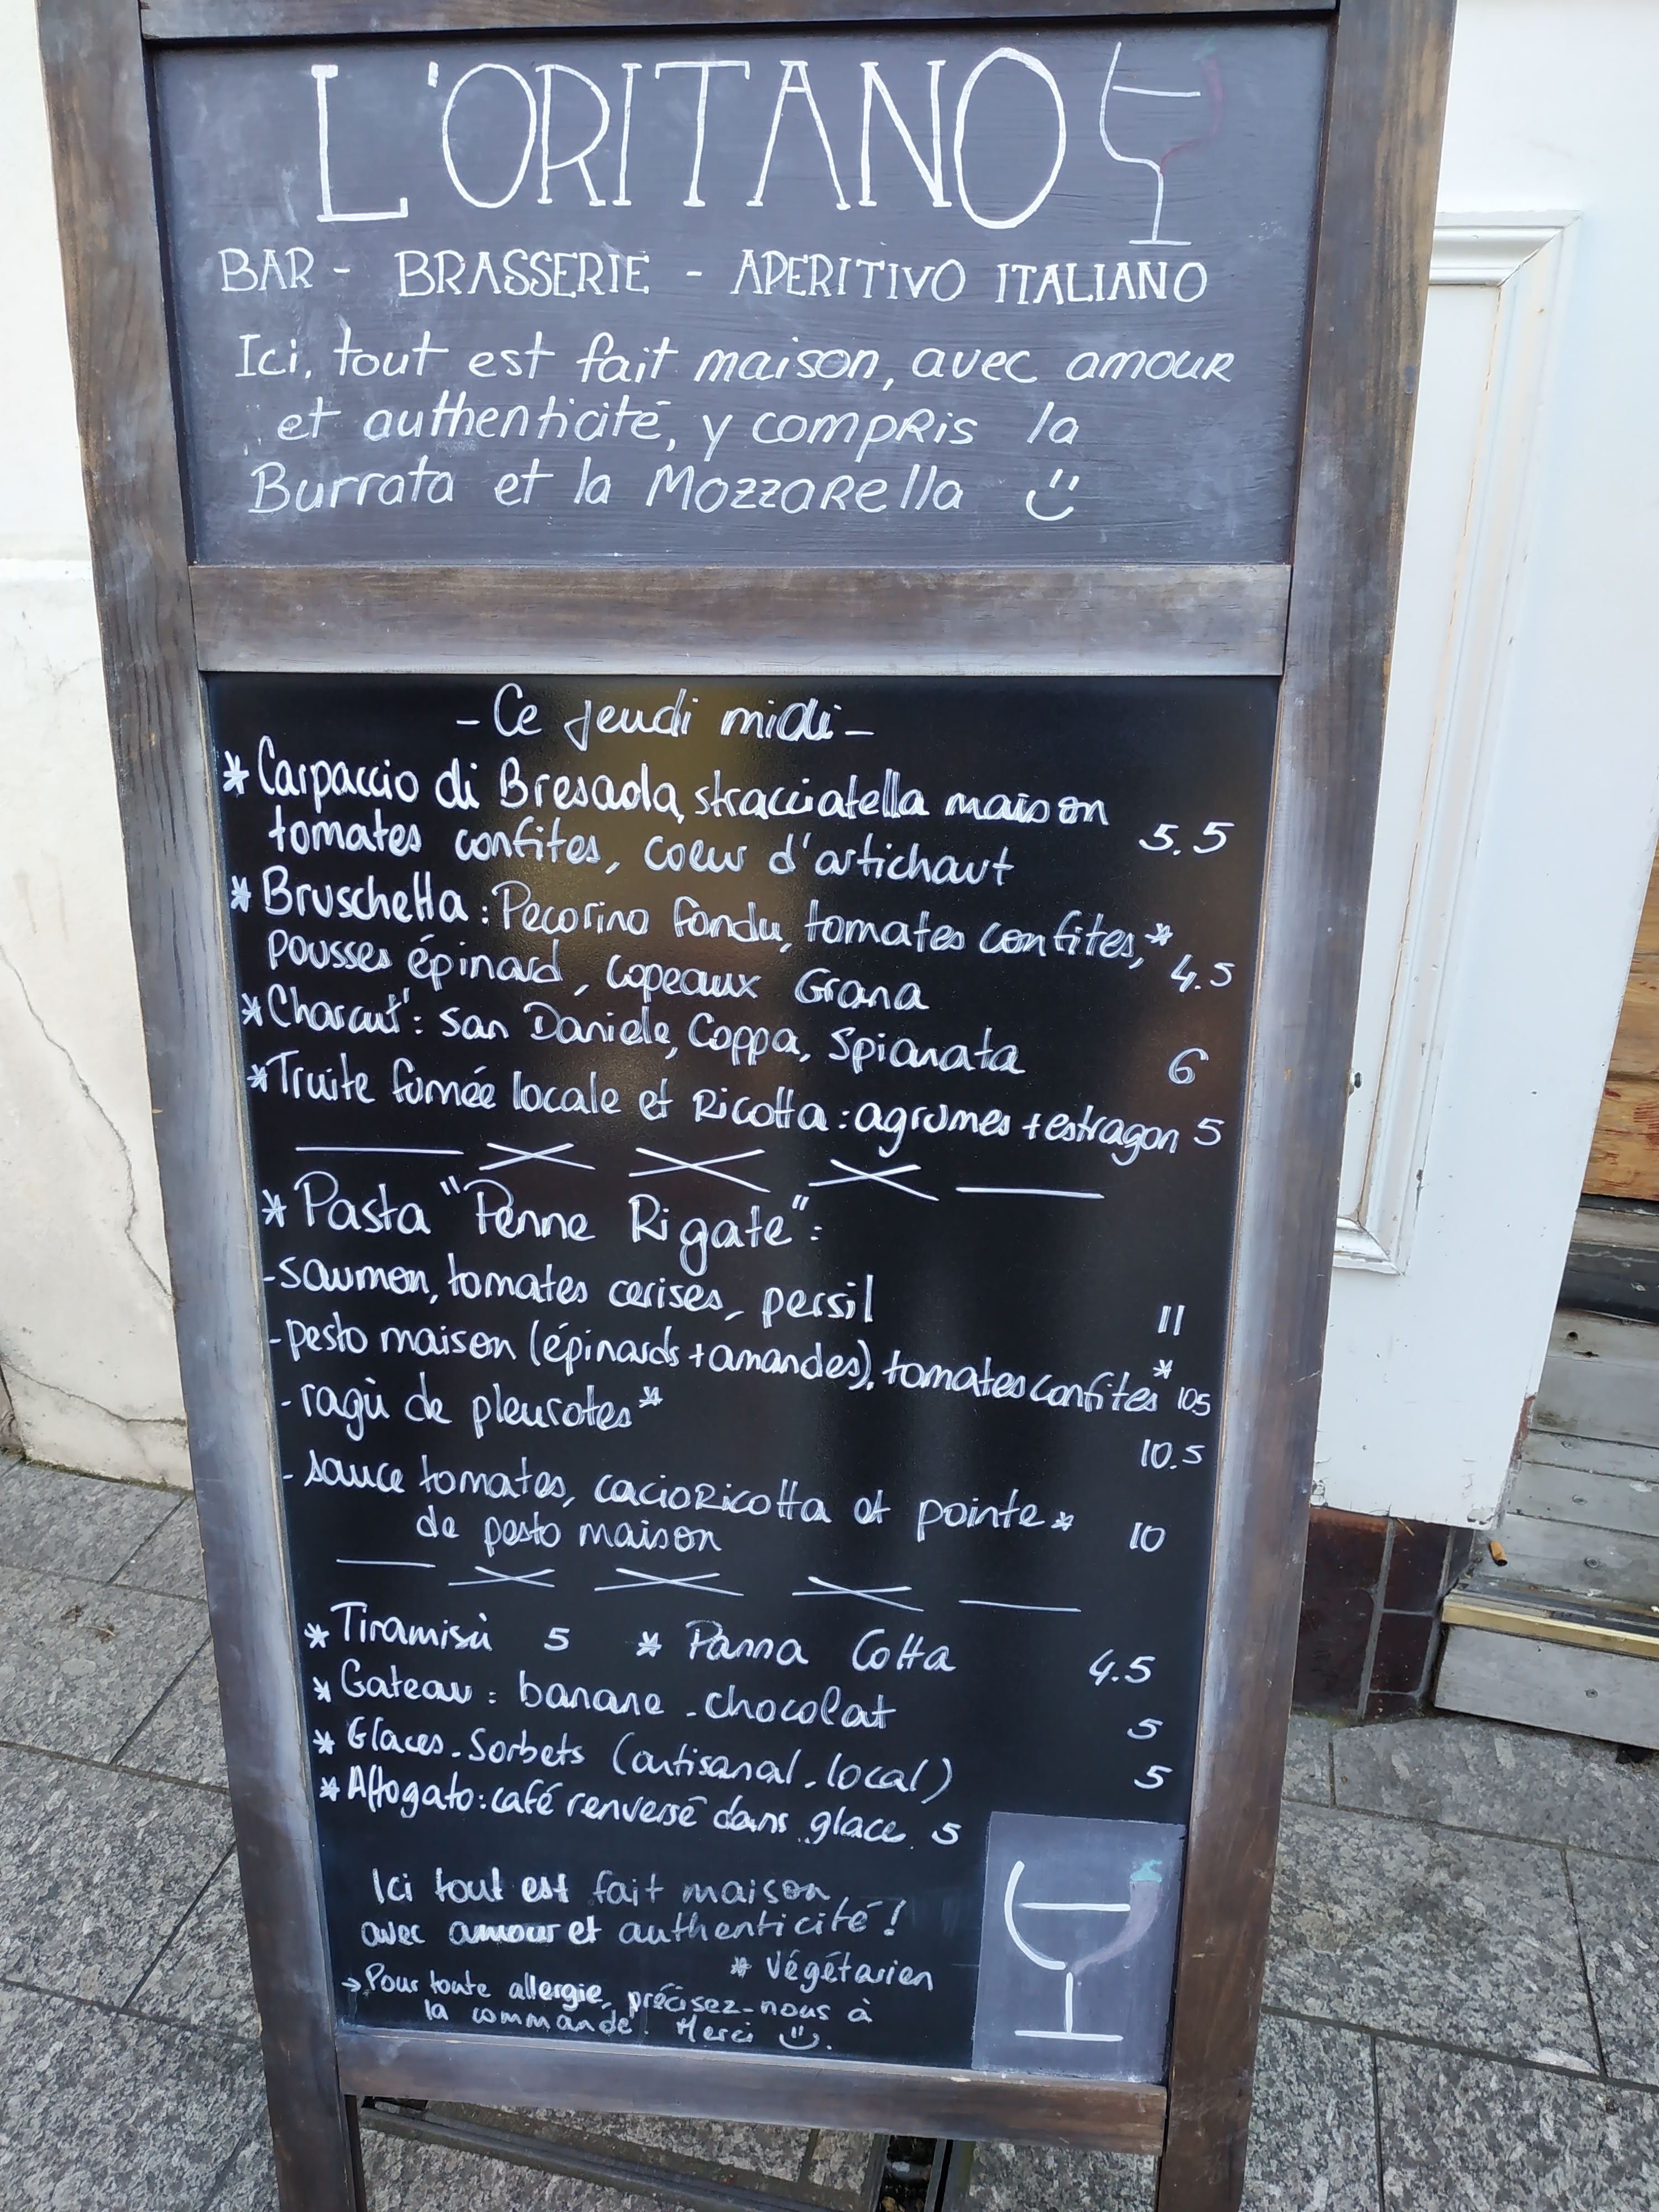 L'ORITANO
BAR - BRASSERIE - APERITIVO ITALIANO
Ici, tout est fait maison, avec amour
et authenticité, y compris la
Burrata et la Mozzarella
- Ce jeudi midi -
* Carpaccio di Bresaola, stracciatella maison
tomates confites, coeur d'artichaut 5.5
* Bruschetta : Pecorino fondu, tomates confites,*
pousses épinard, copeaux Grana 4.5
* Charcut' : San Daniele, Coppa, Spianata 6
* Truite fumée locale et Ricotta : agrumes + estragon 5
* Pasta "Penne Rigate" :
- saumon, tomates cerises, persil 11
- pesto maison (épinards + amandes), tomates confites* 105
- ragù de pleurotes* 10.5
- sauce tomates, cacioricotta et pointe *
de pesto maison 10
* Tiramisù 5 * Panna Cotta 4.5
* Gateau : banane - chocolat 5
* Glaces - Sorbets (artisanal, local) 5
* Affogato : café renversé dans glace 5
Ici tout est fait maison
avec amour et authenticité !
* Végétarien
→ Pour toute allergie, précisez-nous à
la commande. Merci